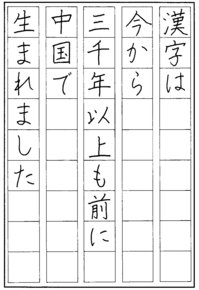 漢字は
今から
三千年以上も前に
中国で
生まれました